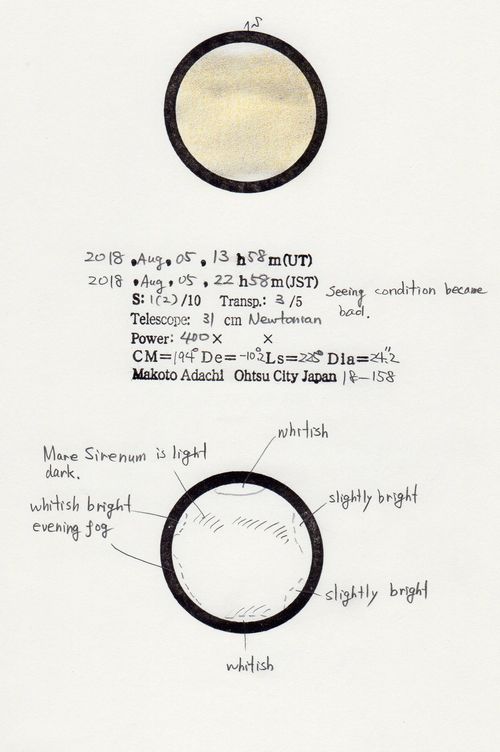 S
2018 . Aug. 05 , 13 h 58 m (UT)
2018 . Aug. 05 , 22 h 58 m (JST)
S: 1(2) /10 Transp.: 3 /5
Seeing condition became
bad.
Telescope: 31 cm Newtonian
Power: 400 × ×
CM=194° De=-10°.2 Ls=225° Dia=24".2
Makoto Adachi Ohtsu City Japan 18-158
whitish
Mare Sirenum is light
dark.
whitish bright
evening fog
slightly bright
slightly bright
whitish